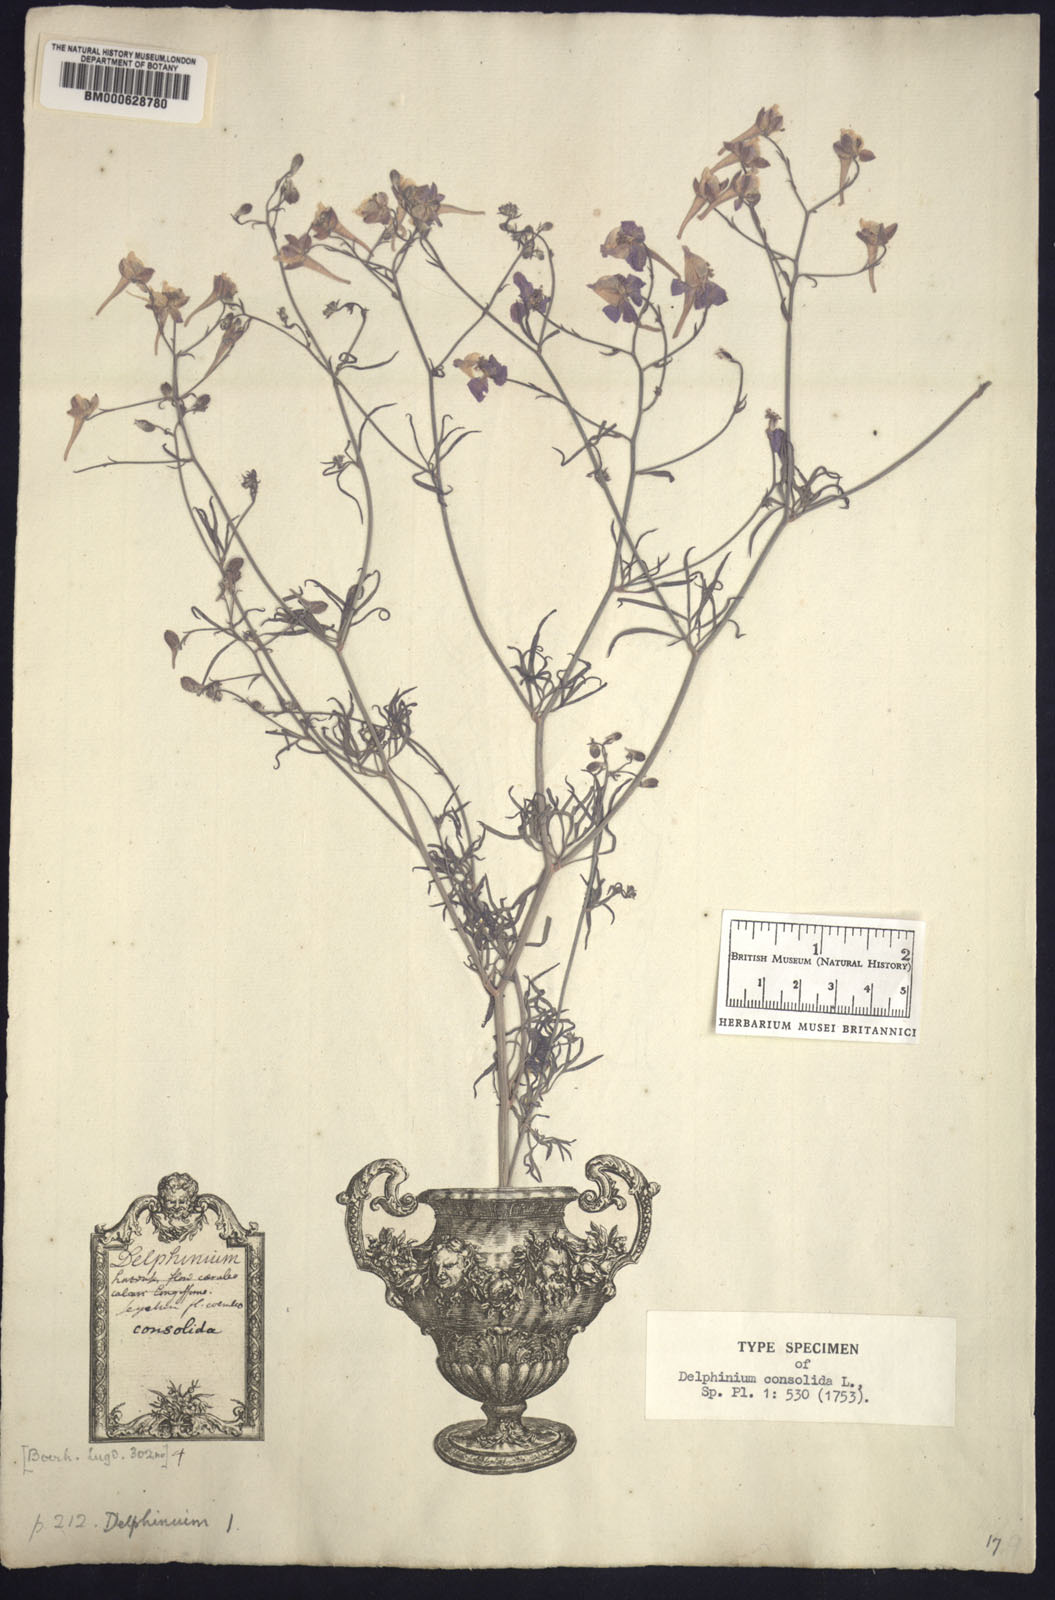 THE NATURAL HISTORY MUSEUM, LONDON
DEPARTMENT OF BOTANY
BM000628780
1 2
BRITISH MUSEUM (NATURAL HISTORY)
1 2 3 4 5
HERBARIUM MUSEI BRITANNICI
Delphinium
flore
calcari
consolida
TYPE SPECIMEN
of
Delphinium consolida L.,
Sp. Pl. 1: 530 (1753).
[Boerh. Lugd. 302 4
p. 212. Delphinium 1.
17